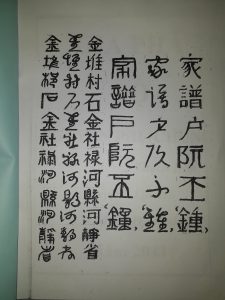 家譜户阮丕鍾
家譜户阮丕鍾
家譜户阮丕鍾
金堆村石金社禄河縣河靜省
金堆村石金社禄河縣河靜省